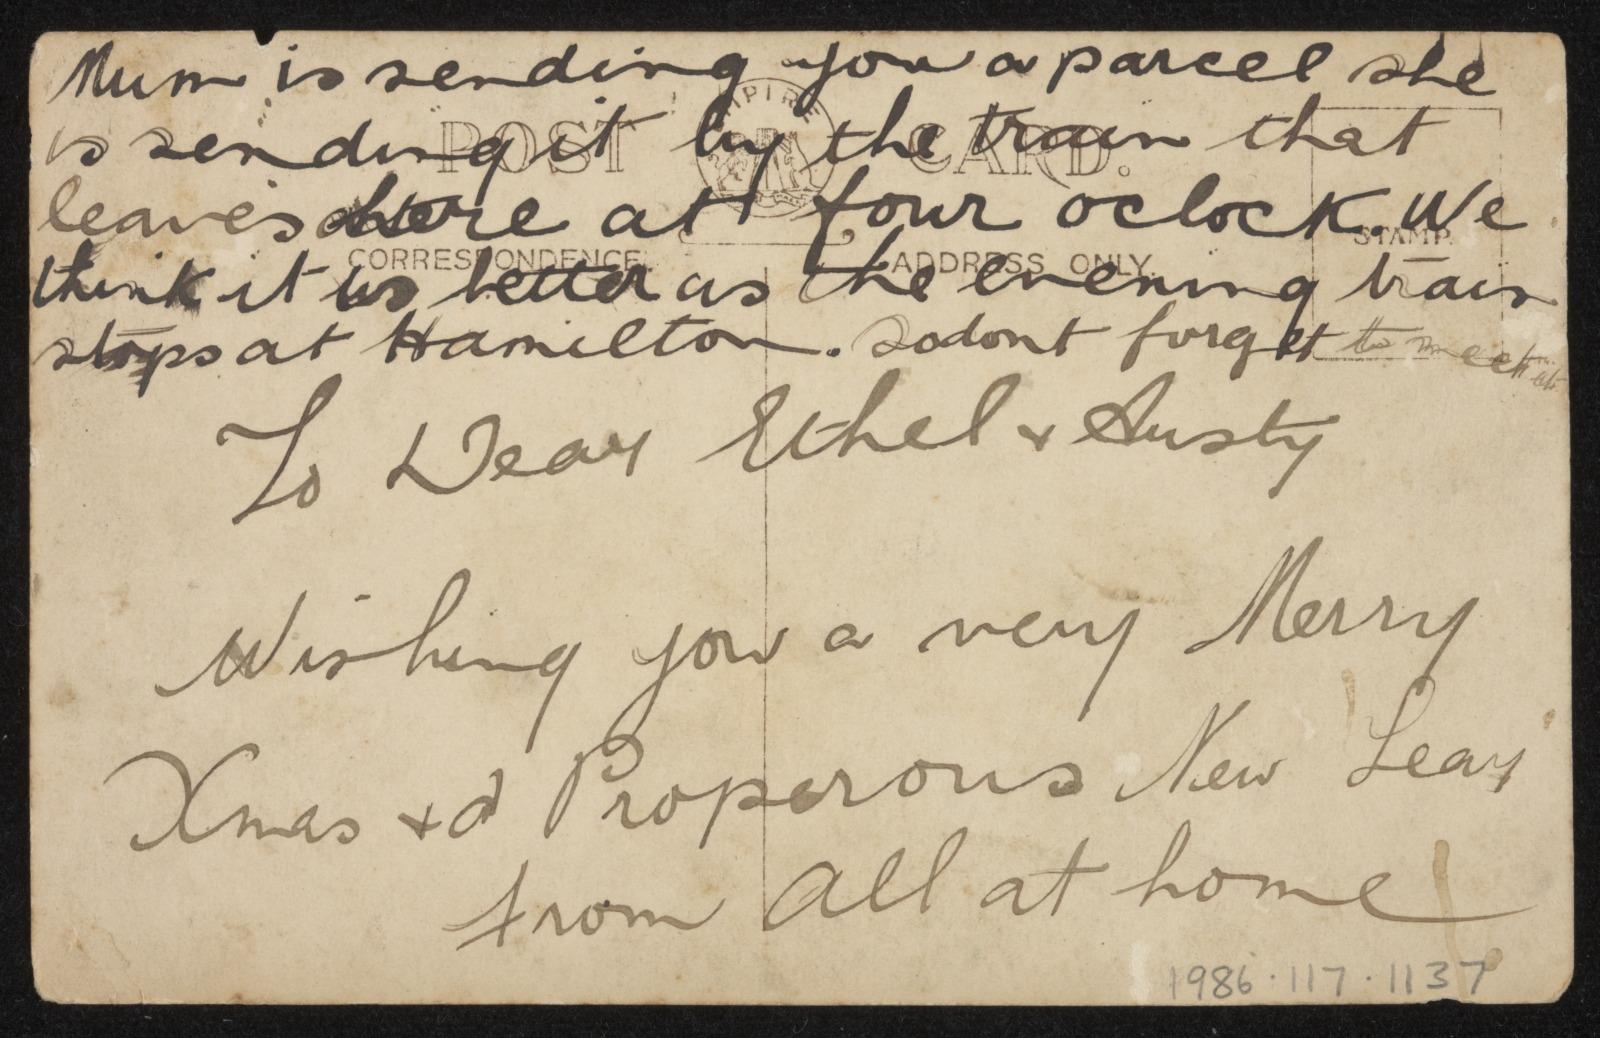 Mum is sending you a parcel she
is sending it by the train that
leaves here at four oclock. We
think it is better as the evening train
stops at Hamilton. so dont forget to meet it
POST CARD.
EMPIRE
CORRESPONDENCE
ADDRESS ONLY.
STAMP
To Dear Ethel & Austy
Wishing you a very Merry
Xmas & a Properous New Year
from all at home
1986.117.1137